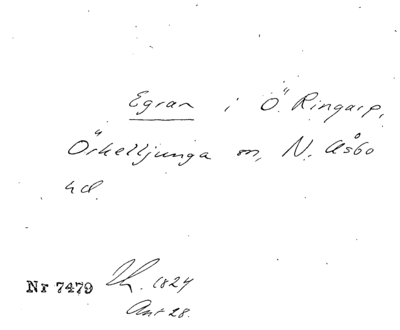 Egran i Ö Ringarp,
Örkelljunga sn, N. Åsbo
hd.
Nr 7479 Th. 1824
Ant 28.